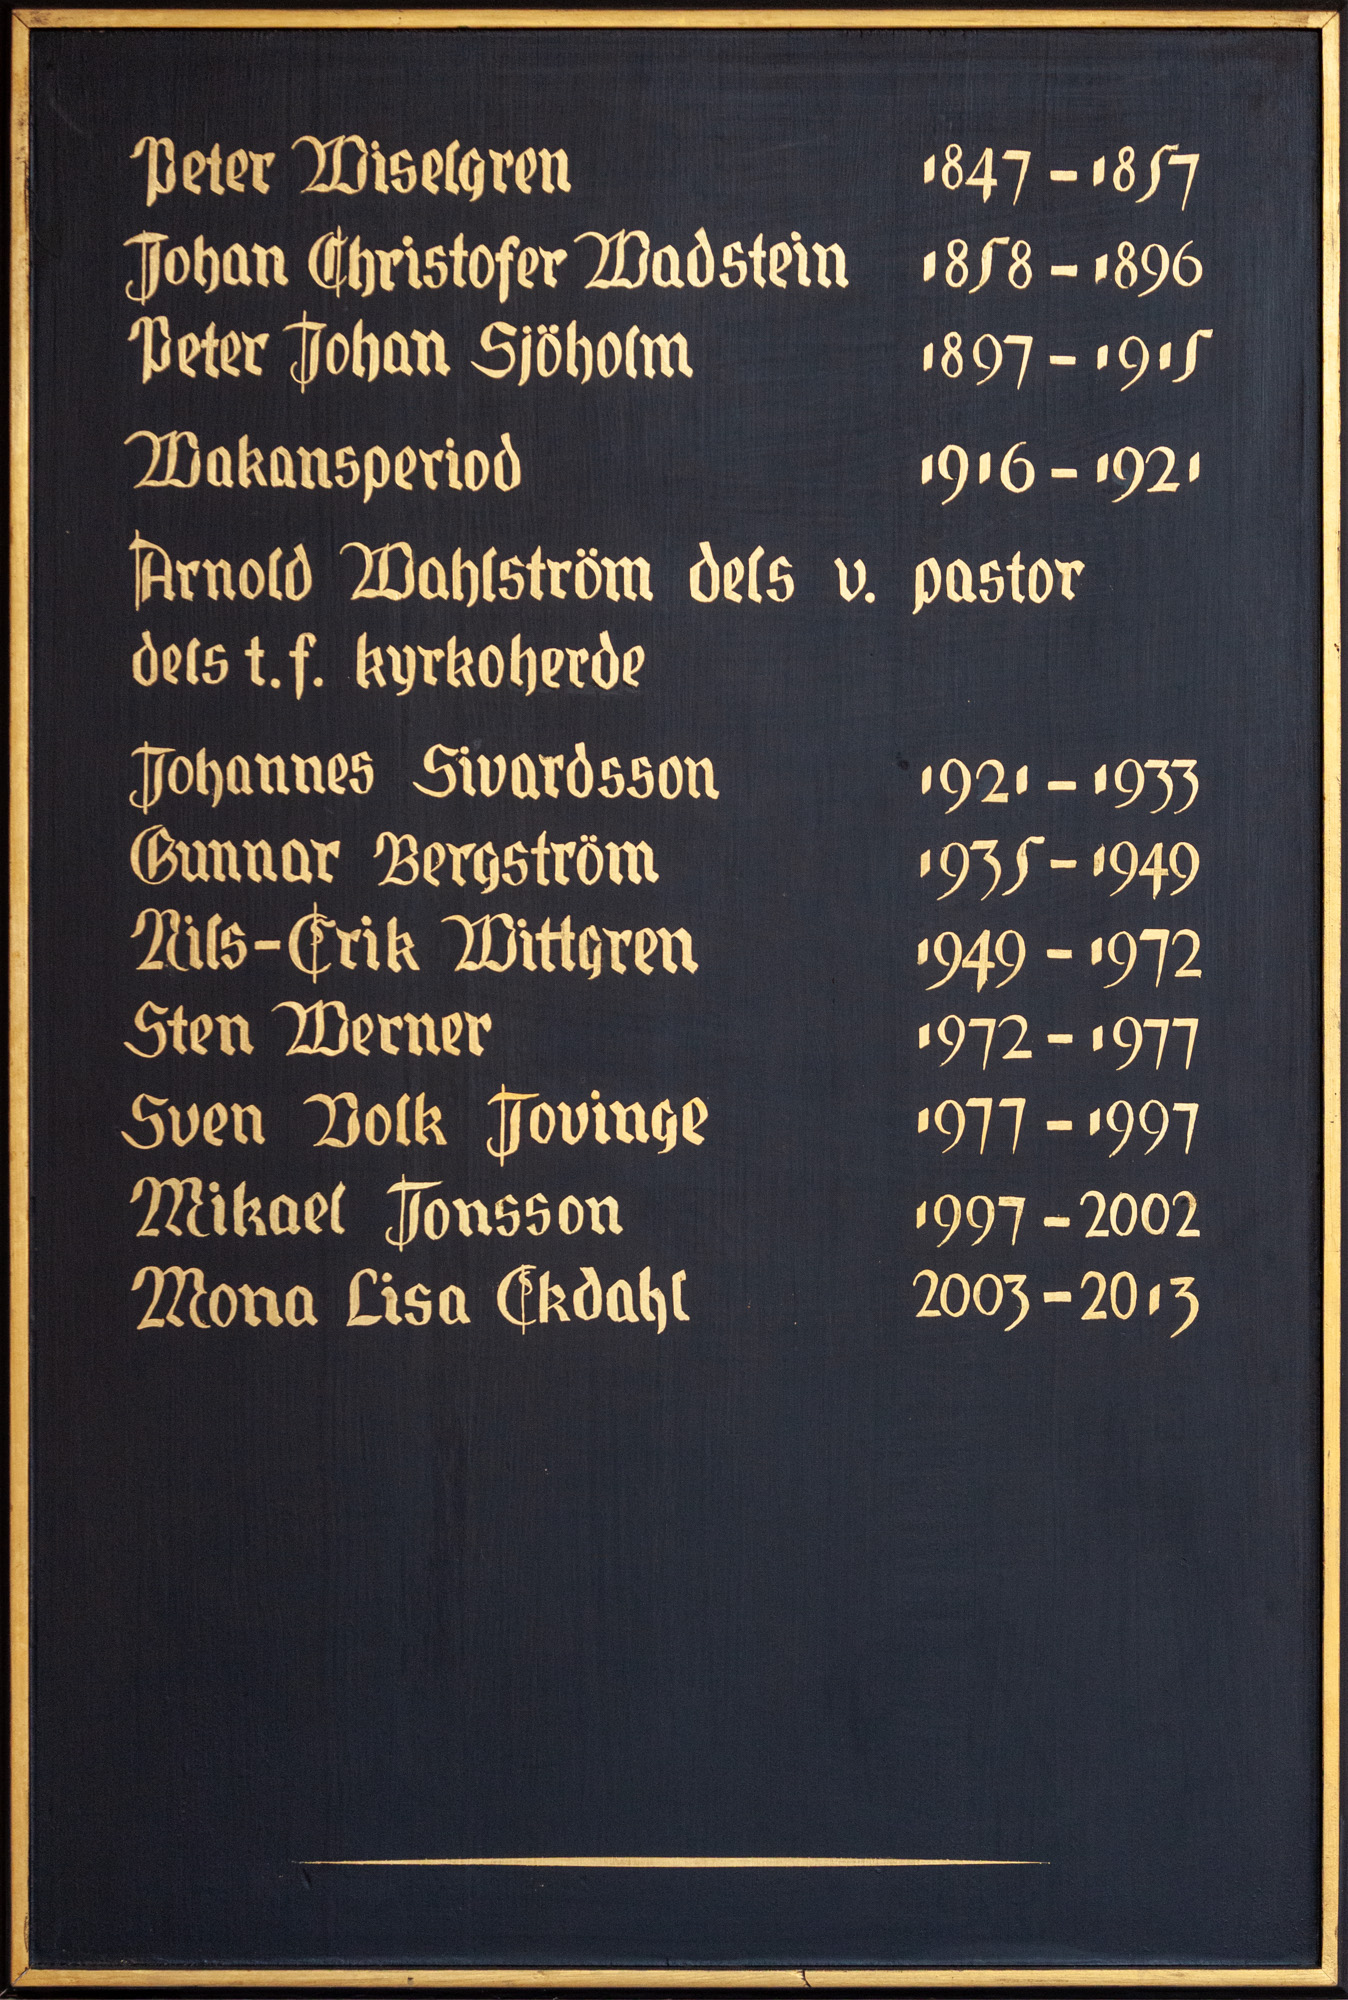 Peter Wiselgren 1847 – 1857
Johan Christofer Wadstein 1858 – 1896
Peter Johan Sjöholm 1897 – 1915
Wakansperiod 1916 – 1921
Arnold Wahlström dels v. pastor
dels t.f. kyrkoherde
Johannes Sivardsson 1921 – 1933
Gunnar Bergström 1935 – 1949
Nils-Erik Wittgren 1949 – 1972
Sten Werner 1972 – 1977
Sven Volk Jovinge 1977 – 1997
Mikael Jonsson 1997 – 2002
Mona Lisa Ekdahl 2003 – 2013